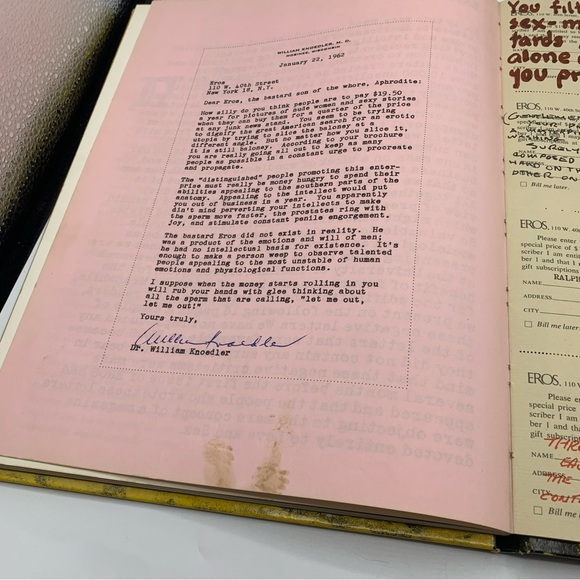 WILLIAM KNOEDLER, M. D.
January 22, 1962
Eros
110 W. 40th Street
New York 18, N.Y.
Dear Eros, the bastard son of the whore, Aphrodite:
How silly do you think people are to pay $19.50
a year for pictures of nude women and sexy stories
when they can buy them for a quarter of the price
at any junk news stand. You seem to be trying
to dignify the great American search for an erotic
utopia by trying to slice the baloney at a
different angle. But no matter how you slice it,
it is still baloney. According to your brochure
you are really going all out to keep as many
people as possible in a constant urge to procreate
and propagate.
The "distinguished" people promoting this enter-
prise must really be money hungry to spend their
abilities appealing to the southern parts of the
anatomy. Appealing to the intellect would put
you out of business in a year. You apparently
don't mind perverting your intellects to make
the sperm move faster, the prostates ring with
joy, and stimulate constant penile engorgement.
The bastard Eros did not exist in reality. He
was a product of the emotions and will of men;
he had no intellectual basis for existence. It's
enough to make a person weep to observe talented
people appealing to the most unstable of human
emotions and physiological functions.
I suppose when the money starts rolling in you
will rub your hands with glee thinking about
all the sperm that are calling, "let me out,
let me out!"
Yours truly,
William Knoedler
Dr. William Knoedler
You filt
sex-m
tards
alone
you p
EROS, 110 W. 40th
COMPOSED
HARD ON TH
OTHER ON
Bill me later.
EROS, 110 W. 40
Please enter
special price of $
scriber I am entit
ber 1 and that I
gift subscriptions
RALPH
NAME
ADDRESS
CITY
Bill me later
EROS, 110
Please en
special price
scriber I am
ber 1 and th
gift subscrip
NAME
ADDRESS
THE
CITY
CONT
Bill m